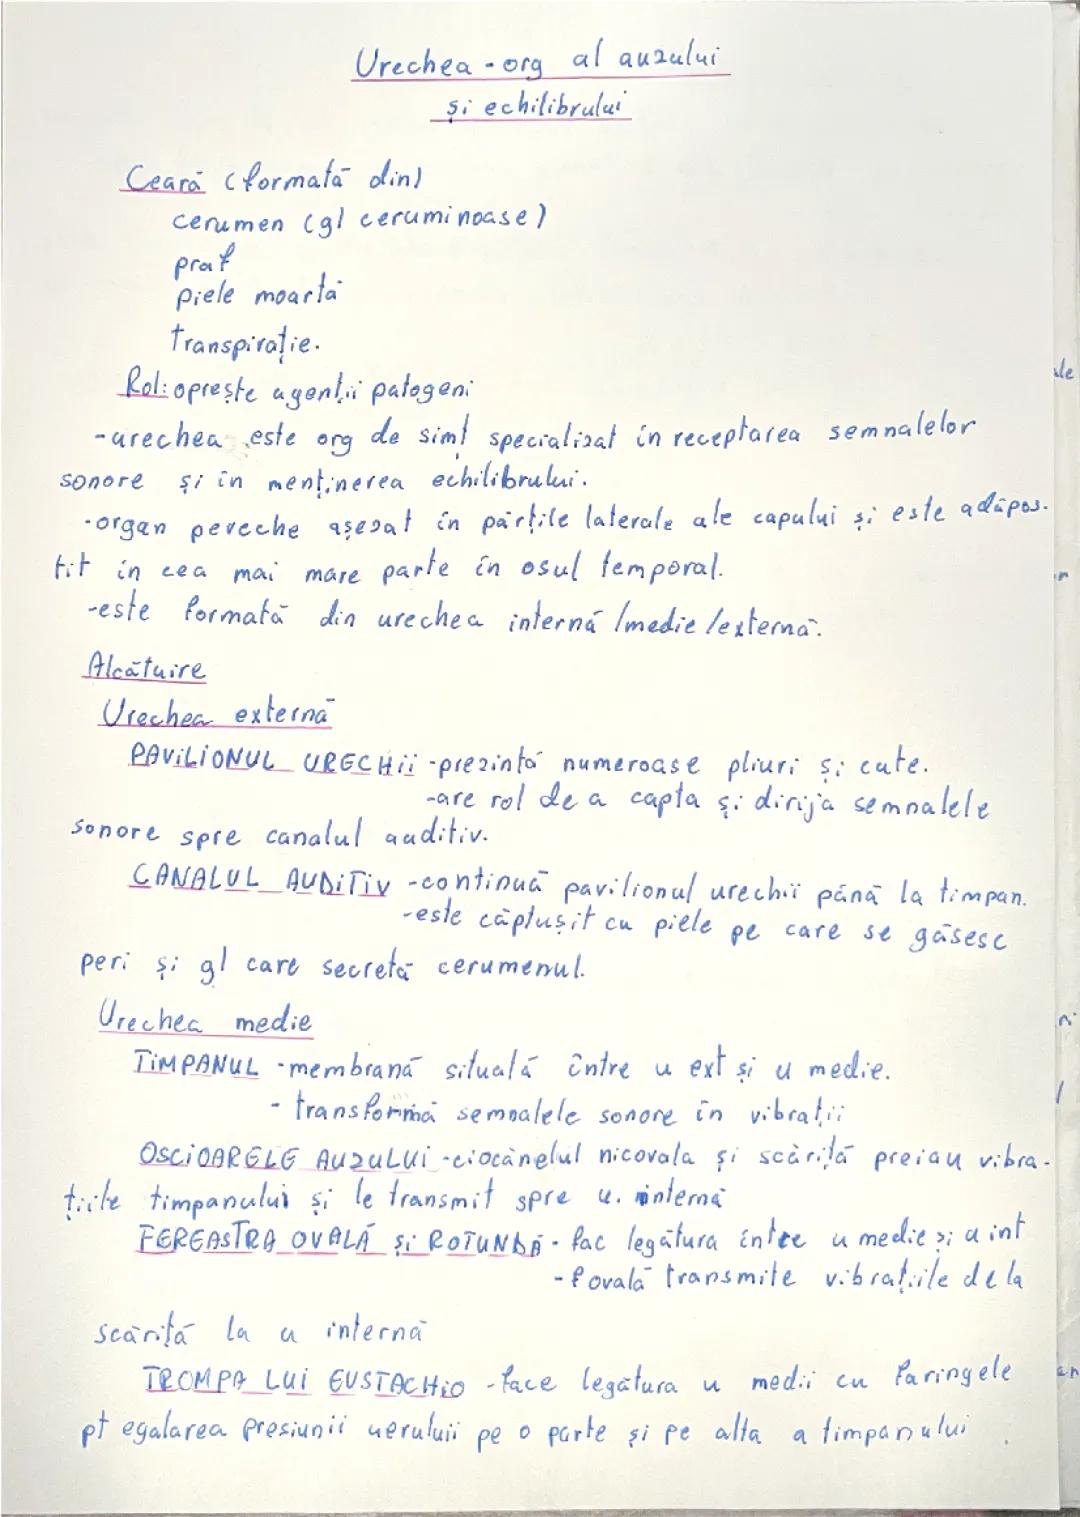 Urechea - org al auzului
și echilibrului
Ceară (formată din)
cerumen (gl ceruminoase)
praf
piele moartă
transpirație.
Rol: oprește agenții patogeni
-urechea este org de simț specializat în receptarea semnalelor
sonore și în menținerea echilibrului.
-organ pereche așezat în părțile laterale ale capului și este adăpos-
tit în cea mai mare parte în osul temporal.
-este formată din urechea internă /medie /externă.
Alcătuire
Urechea externă
PAVILIONUL URECHII -prezintă numeroase pliuri și cute.
-are rol de a capta și dirija semnalele
sonore spre canalul auditiv.
CANALUL AUDITIV -continuă pavilionul urechii până la timpan.
-este căptușit cu piele pe care se găsesc
peri și gl care secretă cerumenul.
Urechea medie
TIMPANUL -membrană situată între u ext și u medie.
- transformă semnalele sonore în vibrații
OSCIOARELE AUZULUI -ciocănelul nicovala și scărița preiau vibra-
țiile timpanului și le transmit spre u. internă
FEREASTRA OVALĂ și ROTUNDĂ - fac legătura între u medie și u int
- f ovală transmite vibrațiile de la
scăriță la u internă
TROMPA LUI EUSTACHIO -face legătura u medii cu faringele
pt egalarea presiunii aeruluii pe o parte și pe alta a timpanului
le
r
n
an